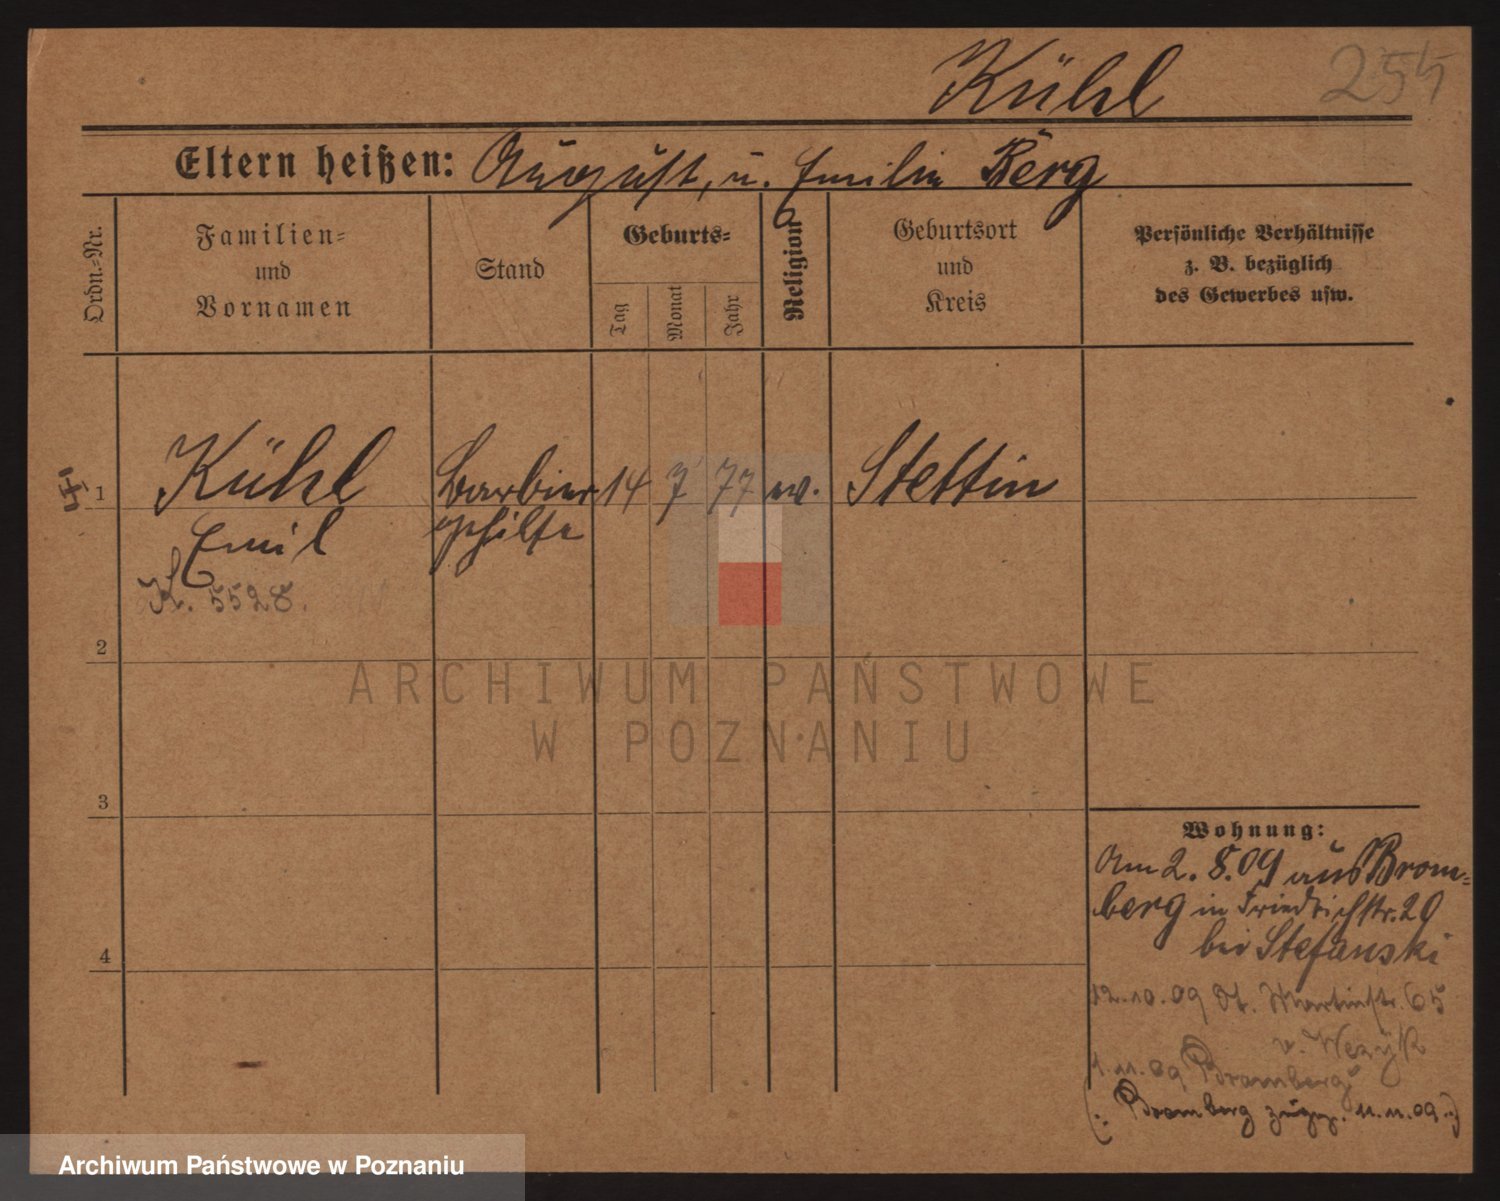 Kühl 255
Eltern heißen: August, u. Emilie Berg
Ordn.-Nr.
Familien-
und
Vornamen
Stand
Geburts-
Tag Monat Jahr
Religion
Geburtsort
und
Kreis
Persönliche Verhältnisse
z. B. bezüglich
des Gewerbes usw.
1 Kühl Barbier 14 7 77 ev. Stettin
Emil gehilfe
K. 5528.
2
3
4
Wohnung:
Am 2. 8. 09 aus Brom-
berg in Friedrichstr. 29
bei Stefanski
12.10.09 St. Martinstr. 65
v. Wezyk
1.11.09 Bromberg
(: Bromberg zugez. 11.11.09 :)
ARCHIWUM PAŃSTWOWE
W POZNANIU
Archiwum Państwowe w Poznaniu